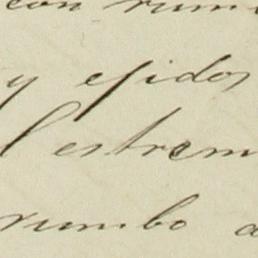 con rumb
y ejidos
l estrem
rumbo a